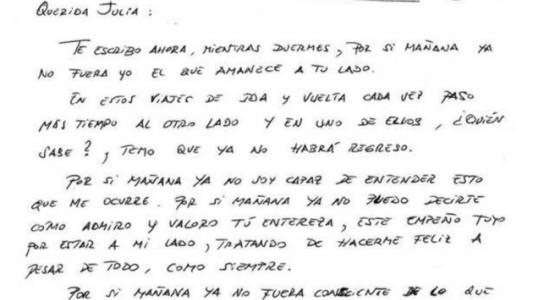 QUERIDA JULIA :
TE ESCRIBO AHORA, MIENTRAS DUERMES, POR SI MAÑANA YA
NO FUERA YO EL QUE AMANECE A TU LADO.
EN ESTOS VIAJES DE IDA Y VUELTA CADA VEZ PASO
MÁS TIEMPO AL OTRO LADO Y EN UNO DE ELLOS, ¿QUIÉN
SABE?, TEMO QUE YA NO HABRÁ REGRESO.
POR SI MAÑANA YA NO SOY CAPAZ DE ENTENDER ESTO
QUE ME OCURRE. POR SI MAÑANA YA NO PUEDO DECIRTE
CÓMO ADMIRO Y VALORO TÚ ENTEREZA, ESTE EMPEÑO TUYO
POR ESTAR A MI LADO, TRATANDO DE HACERME FELIZ A
PESAR DE TODO, COMO SIEMPRE.
POR SI MAÑANA YA NO FUERA CONSCIENTE DE LO QUE